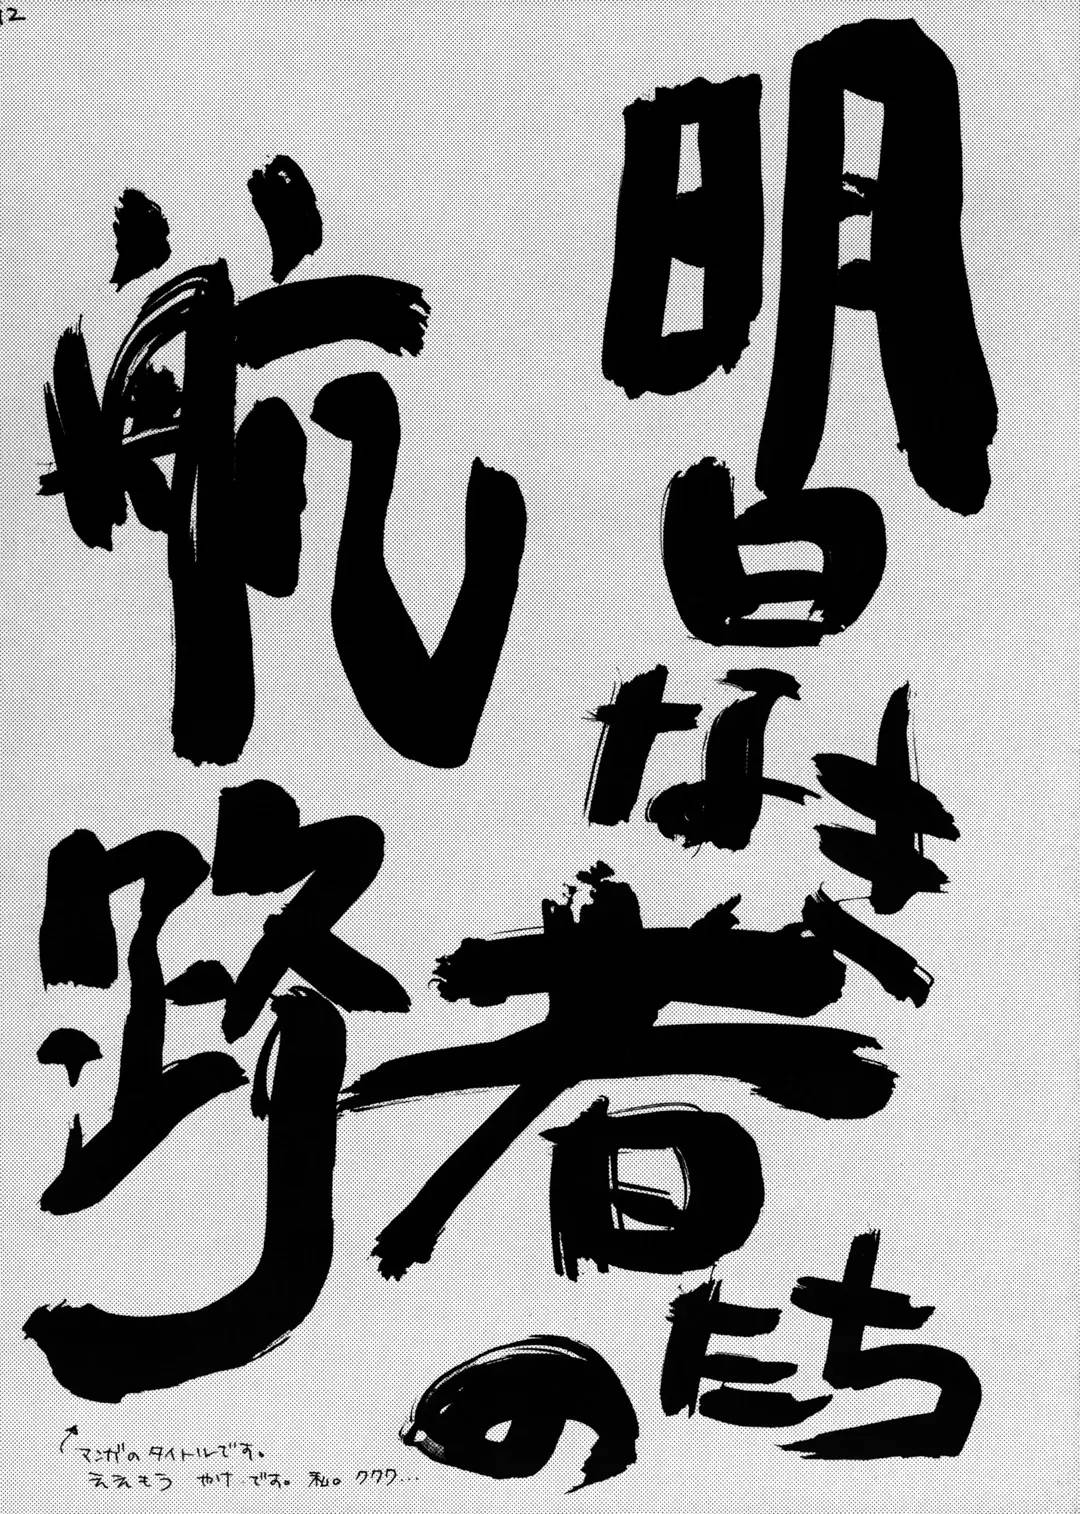 明日なき者たちの
荒野
マンガのタイトルです。
ええもう やけ、です。 私。 ククク…
12